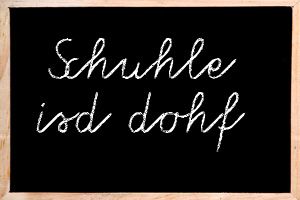 Schuhle
isd dohf